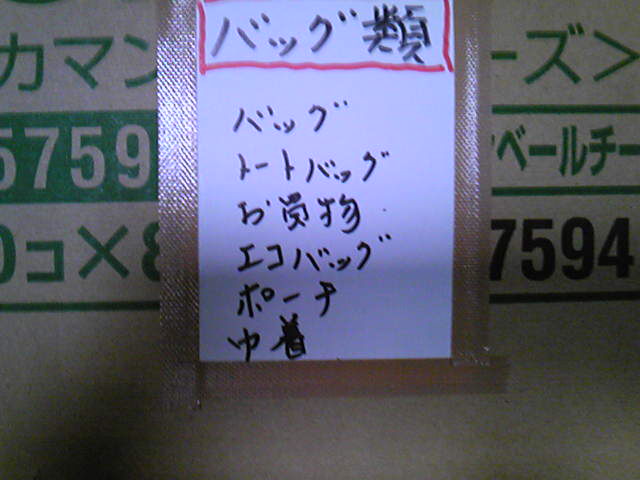 バッグ類
バッグ
トートバッグ
お買物
エコバッグ
ポーチ
巾着
カマン
5759
0コ×8
ーズ>
ベールチー
7594